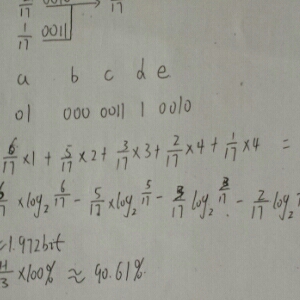 17 0010 17
1/17 0011
a b c d e
01 000 0011 1 0010
6/17 ×1 + 5/17 ×2 + 3/17 ×3 + 2/17 ×4 + 1/17 ×4 =
×log₂ 6/17 - 5/17 ×log₂ 5/17 - 3/17 log₂ 3/17 - 2/17 log₂
=1.972bit
×100% ≈ 90.61%